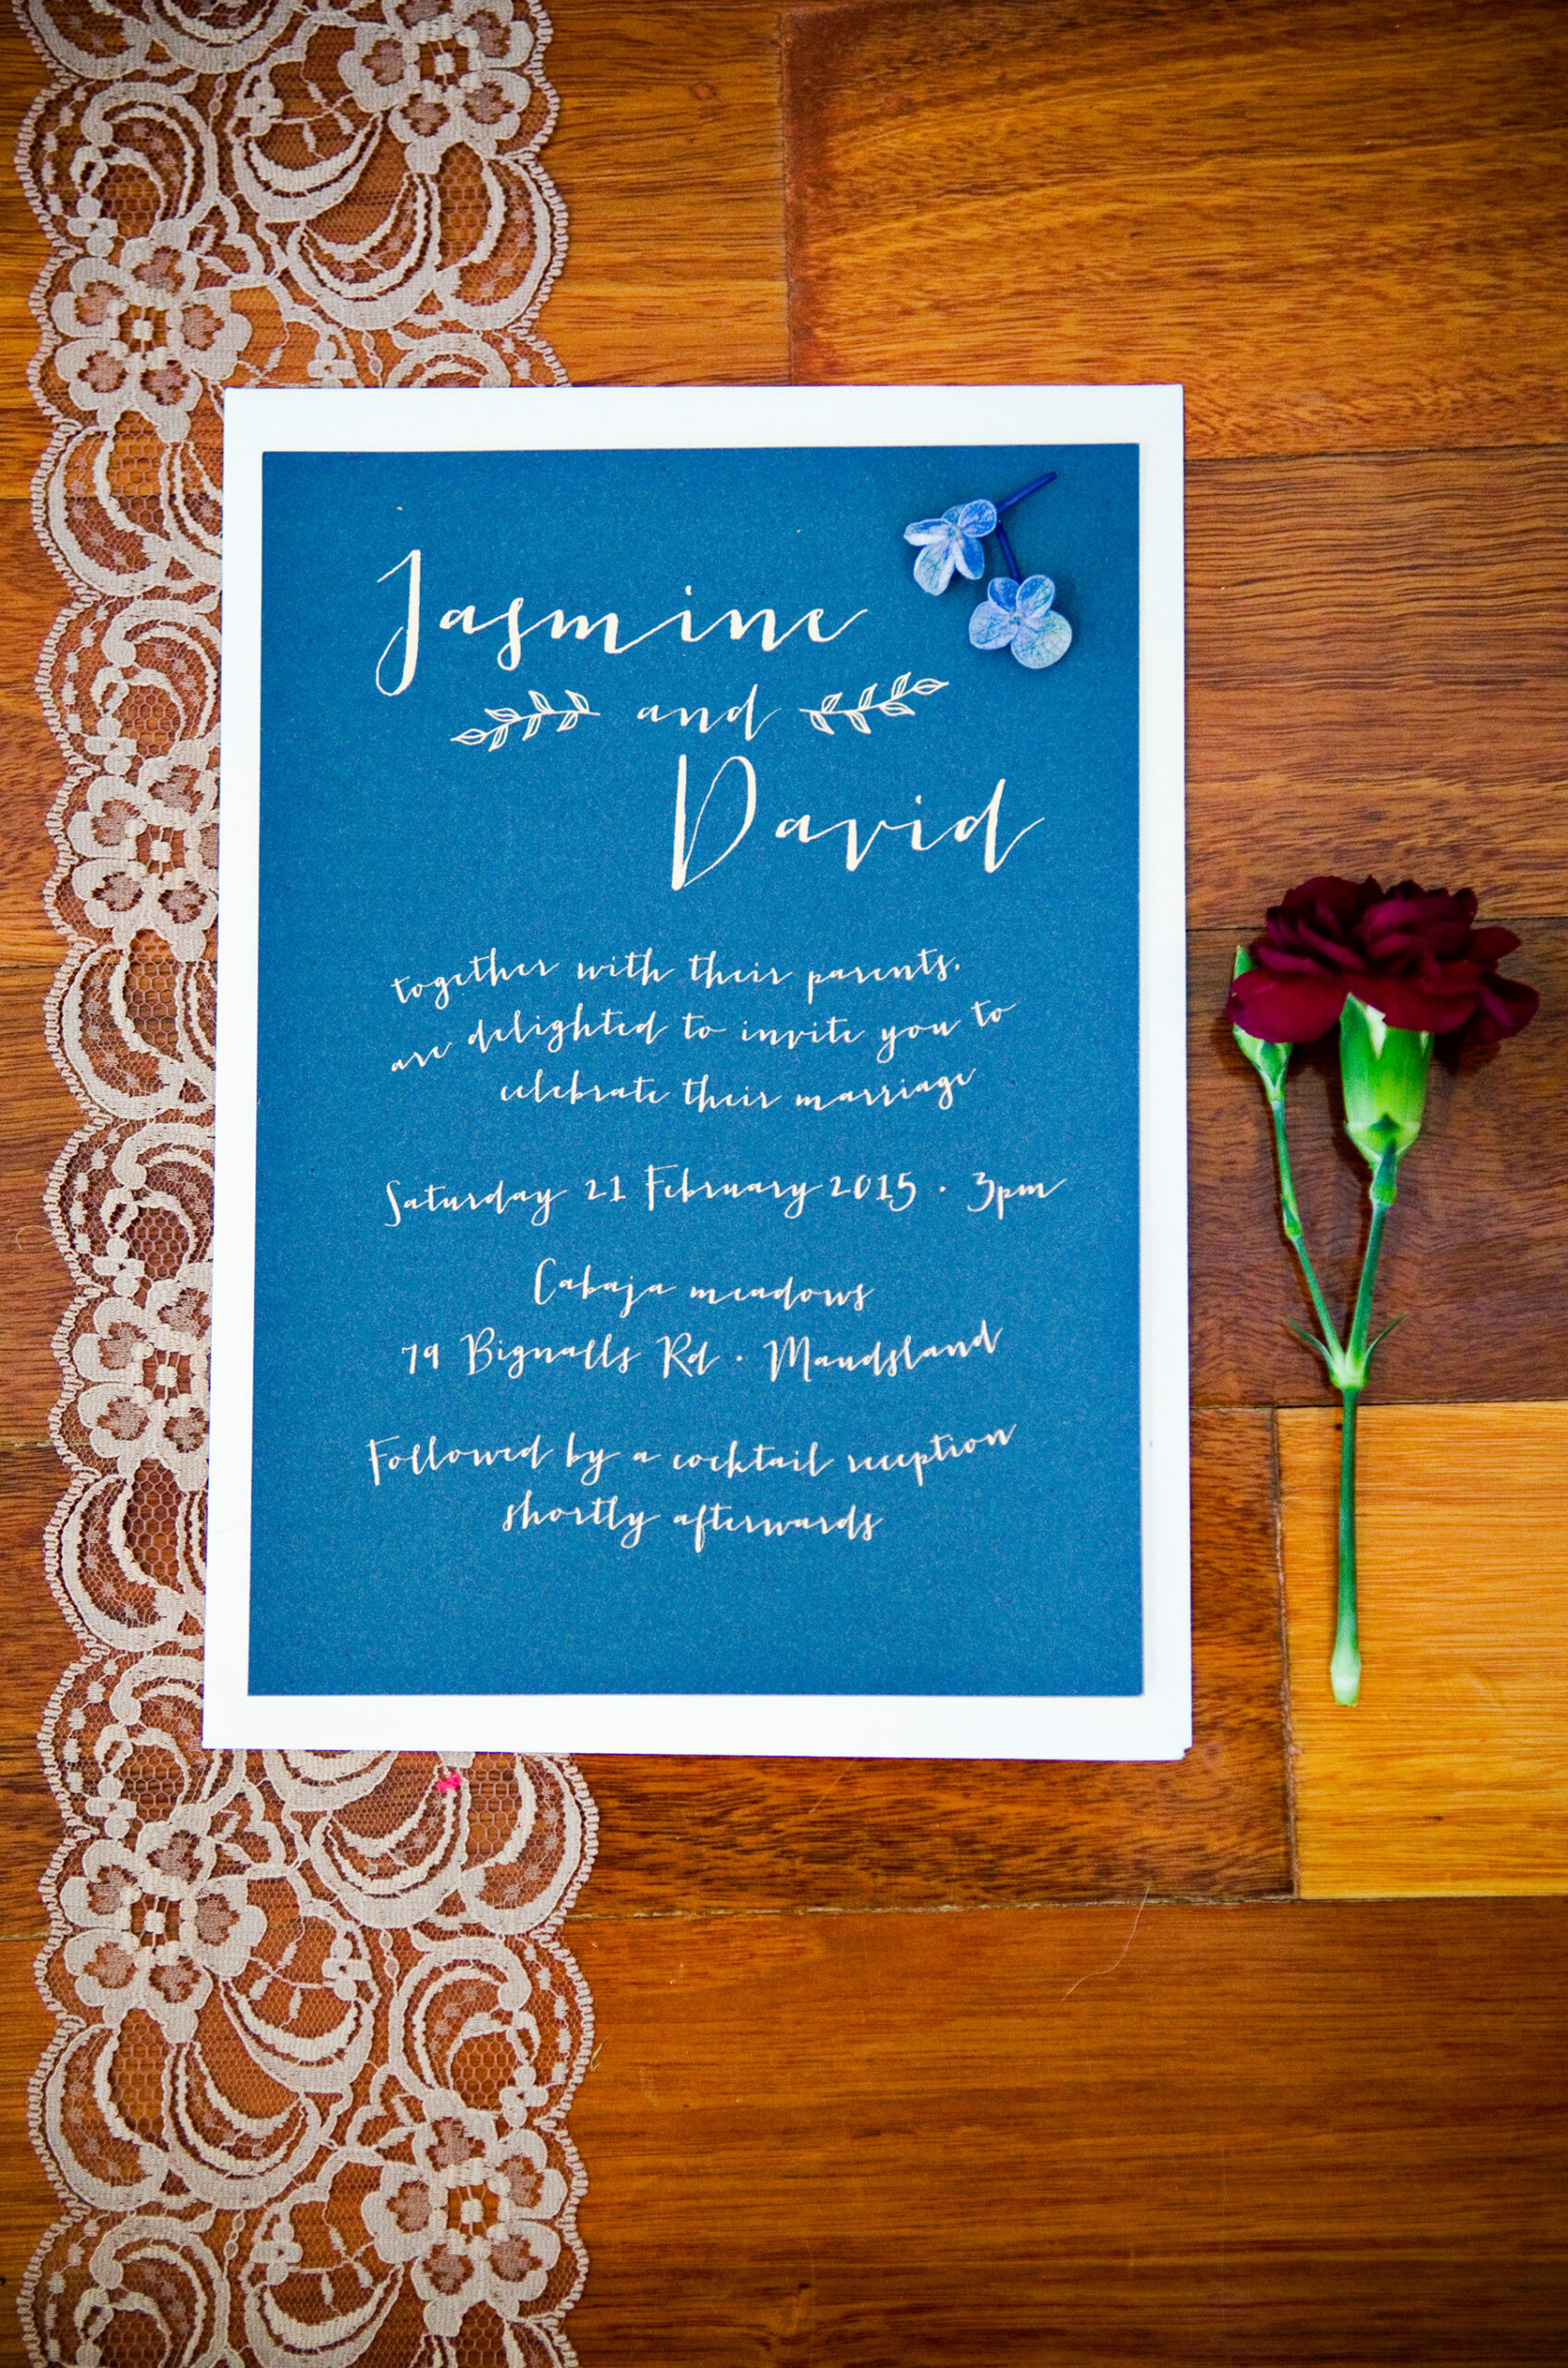 Jasmine
and
David
together with their parents,
are delighted to invite you to
celebrate their marriage
Saturday 21 February 2015 · 3pm
Cabaja meadows
79 Bignalls Rd · Maudsland
Followed by a cocktail reception
shortly afterwards